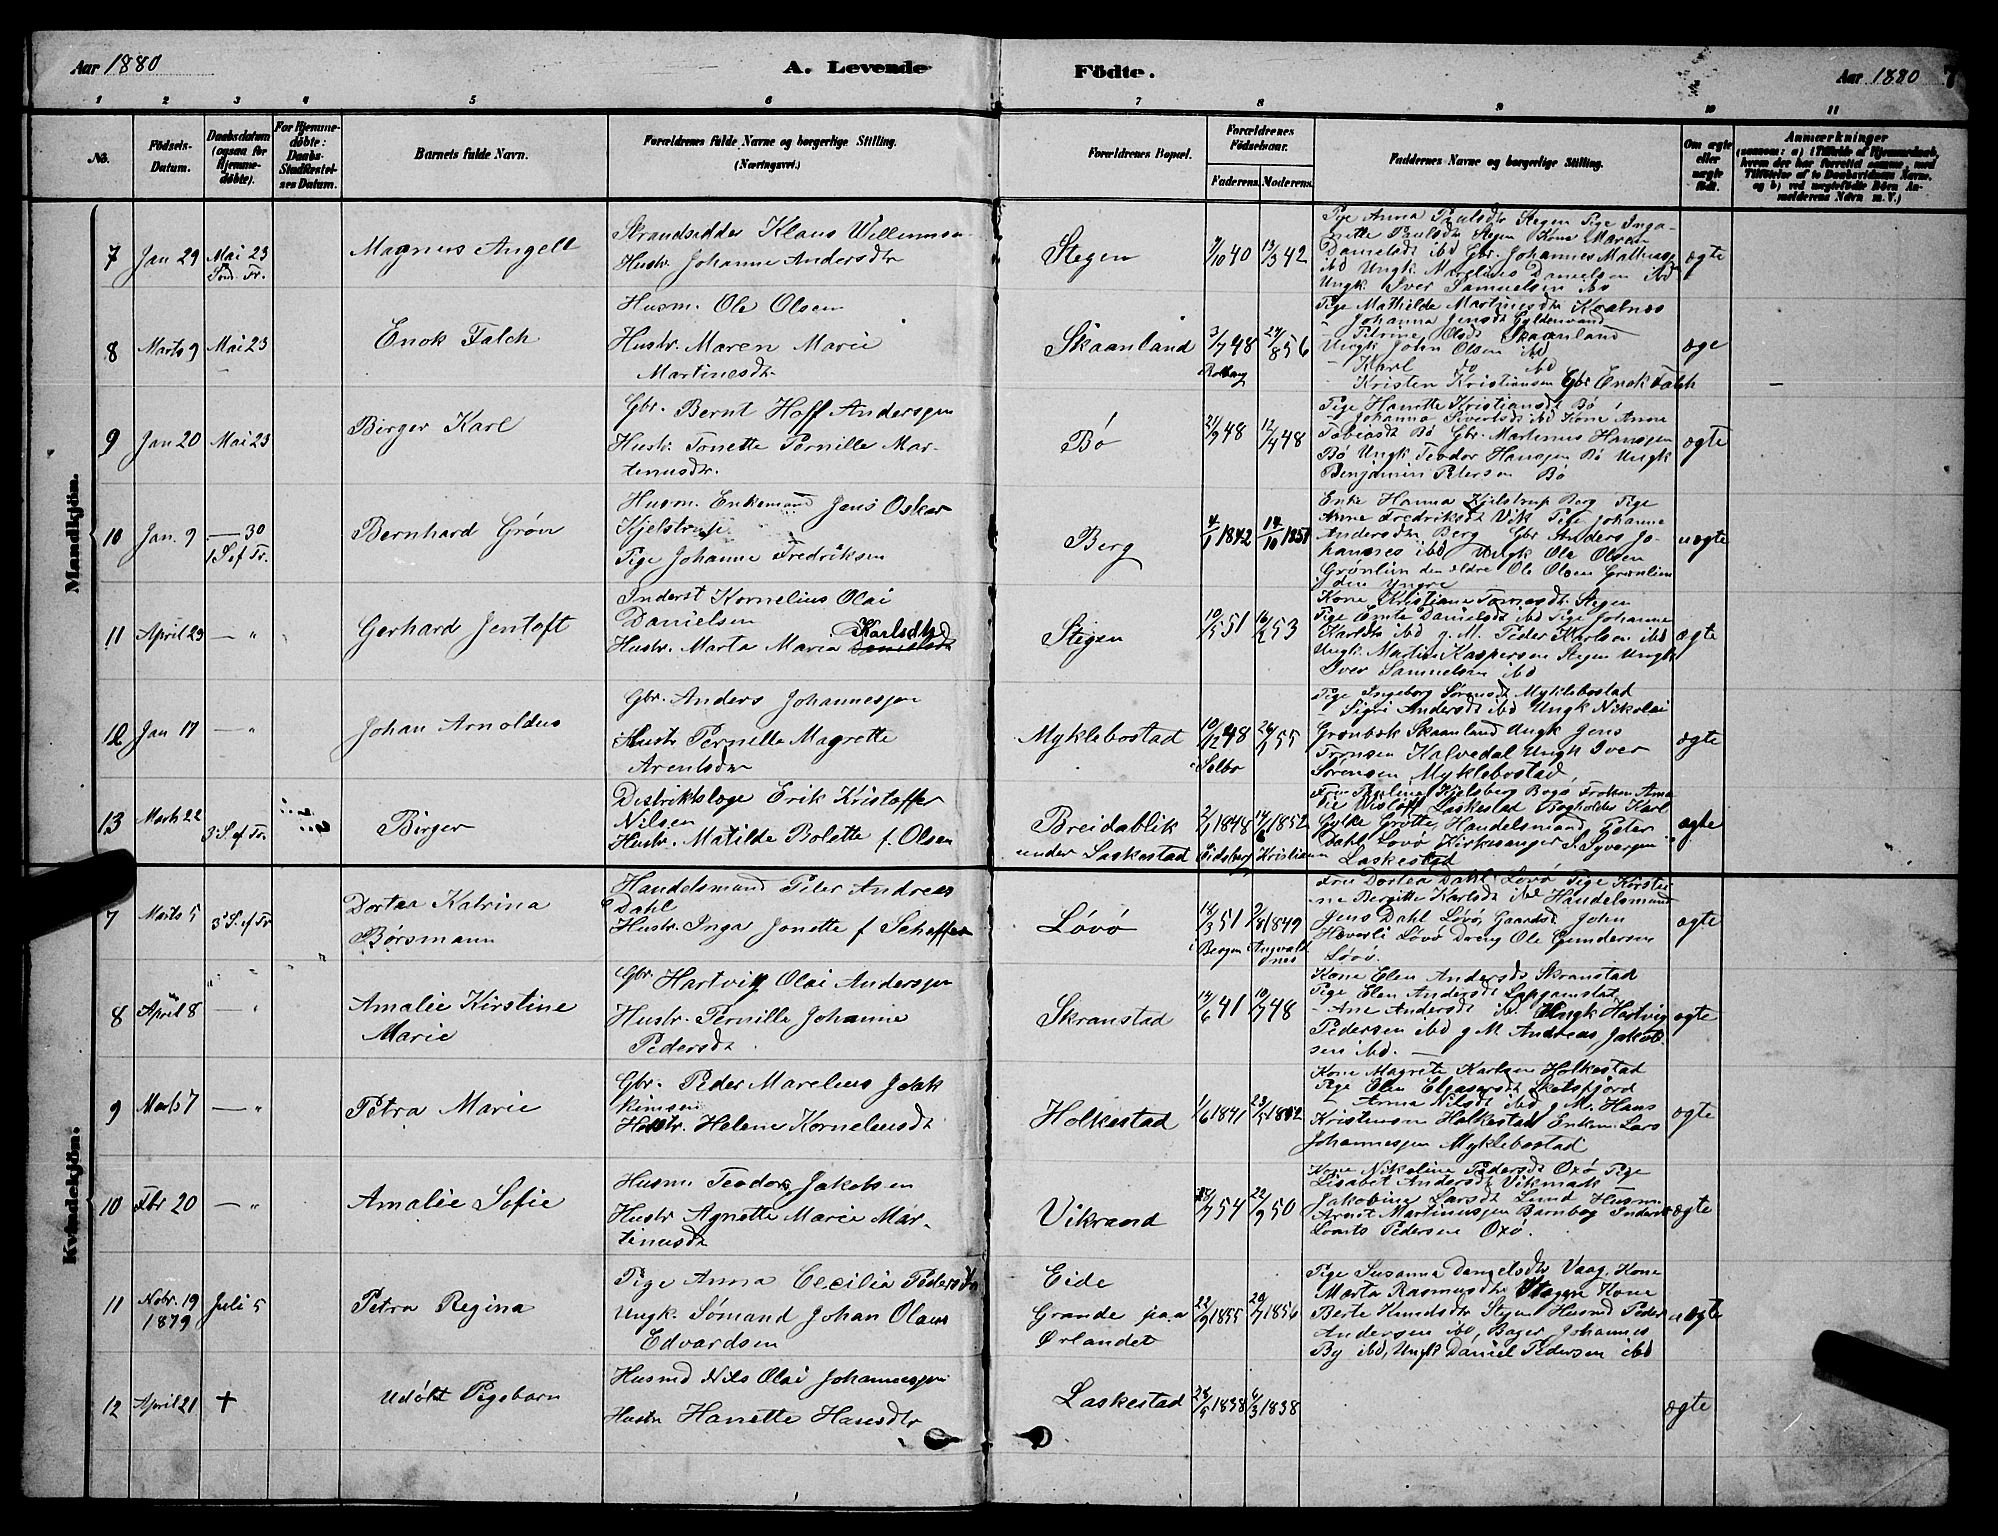 Aar 1880
A. Levende
Födte.
Aar 1880
7
1 2 3 4 5 6 7 8 9 10 11
No.
Födsels-
Datum.
Daabsdatum
(ogsaa for
Hjemme-
döbte).
For Hjemme-
döbte:
Daabs-
Stadfæstel-
ses Datum.
Barnets fulde Navn.
Forældrenes fulde Navne og borgerlige Stilling.
(Næringsvei.)
Forældrenes Bopæl.
Forældrenes
Födselsaar.
Faderens. Moderens.
Faddernes Navne og borgerlige Stilling.
Om ægte
eller
uægte
födt.
Anmærkninger
(saasom: a) i Tilfælde af Hjemmedaab,
hvem der har forrettet samme, med
Tilföielse af to Daabsvidners Navne.
og b) ved uægtefödte Börn An-
melderens Navn m. V.)
Mandkjön.
7 Jan 29 Mai 23
Magnus Angell
Strandsidder Klaus Willumsen
Hustr. Johanne Andersdtr
Stegen
9/10 40 13/3 42
Pige Anna Paulsdtr Stegen Pige Inga-
nette Paulsdtr Stegen Kone Maren
Danielsdt ibd Gbr. Johannes Mathias
ibd Ungk Marelius Danielsen ibd
Ungk Iver Samuelsen ibd
ægte
8 Marts 9 Mai 23
Enok Falch
Husm. Ole Olsen
Hustr. Maren Marie
Martinesdtr
Skaanland
3/7 48 24/8 56
Pige Mathilde Martinesdtr Kaalnes
- Johanna Jensdt
- Petrine Olsdt Skaanland
Ungk John Olsen ibd
- Karl do ibd
Kristen Kristiansen Gbr Enok Falch
æge
9 Jan 20 Mai 23
Birger Karl
Gbr. Bernt Hoff Andersen
Hustr Tonette Pernille Mar-
tinusdtr.
Bø
21/9 48 12/4 48
Pige Hanette Kristiansdt Bø
- Johanna Sivertsdt ibd Kone Anne
Tobiasdt Bø Gbr. Martinus Hansen
Bø Ungk Teodor Hansen Bø Ungk
Benjamin Petersen Bø
ægte
10 Jan. 9 — 30
1 S ef Tr.
Bernhard Grøn
Husm. Enkemand Jens Oskar
Kjelstrup
Pige Johanne Fredriksen
Berg
4/1 1842 14/10 1851
Enke Hanna Kjelstrup Berg Pige
Anne Fredriksdt Vik Pige Johanne
Andersdtr Berg Gbr Anders Jo-
hannes ibd Ungk Ole Olsen
Grønlien den eldre Ole Olsen Grønlien
den Yngre
uægte
11 April 23 — "
Gerhard Jentoft
Inderst Kornelius Olai
Danielsen
Hustr. Marta Maria Karlsdtr
Stegen
10/5 51 16/2 53
Kone Kristiane Stegen
Pige Danielsdt ibd Pige Johanne
Karlsdt ibd g. M. Peder Karlsen ibd
Ungk. Martin Kaspersen Stegen Ungk
Iver Samuelsen ibd
ægte
12 Jan 17 — "
Johan Arnoldus
Gbr. Anders Johannesen
Hustr Pernille Magrette
Arentsdtr
Myklebostad
10/12 48 26/1 55
i Selbo
Pige Ingeborg Sørensdt Myklebostad
Sigri Andersdt ibd Ungk Nikolai
Grønbek Skaanland Ungk Jens
Kalvedal Ungk Iver
Sørensen Myklebostad
ægte
13 Marts 22
3 S ef Tr.
Birger
Distriktslæge Erik Kristoffer
Nilsen
Hustr. Matilde Bolette f. Olsen
Breidablik
under Laskestad
2/1 1848 14/6 1852
Eidsberg
Kjelsberg Bogø Frøken Anna
Laskestad Karl
Grøtte, Handelsmand Peter
Dahl Løvø Kirkesanger
Laskestad
ægte
Kvindekjön.
7 Marts 5 3 S. ef Tr
Dortea Katrina
Børsmann
Handelsmand Peter Andreas
Dahl
Hustr. Inga Jonette f Schaffer
Løvø
14/3 51 2/8 1849
i Bergen
Fru Dortea Dahl Løvø Pige Kirsti-
ne Bergitte Karlsdt ibd Handelsmand
Jens Dahl Løvø, Gaardst John
Heverli Løvø Dreng Ole Gundersen
Løvø.
ægte
8 April 8 — "
Amalie Kirstine
Marie
Gbr. Hartvig Olai Andersen
Hustr. Pernille Johanne
Pedersdt
Skranstad
14/6 41 10/7 48
Kone Elen Andersdt Skranstad
Pige Elen Andersdt
- Ane Andersdt Ungk Hartvig
Pedersen ibd g M Andreas Jakob-
sen ibd. —
ægte
9 Marts 7 — "
Petra Marie
Gbr. Peder Marelius Joak
kimsen
Hustr. Helene Korneliusdt
Holkestad
1/6 1841 23/5 1842
Kone Magrete Karlsen Holkestad
Pige Olen Eleasersdt
- Anna Nilsdt ibd g M. Hans
Kristensen Holkestad Enkem Lars
Johannesen Myklebostad
ægte
10 Fbr 20 — "
Amalie Sofie
Husm Teodor Jakobsen
Hustr Agnette Marie Mar-
tinusdt
Vikrand
7 54 22/9 50
Kone Nikoline Pedersdt Oxø Pige
Lisabet Andersdt Vikmark
Jakobine Larsdt Lund Husm
Arnt Martinussen Barnbog Inderst
Lorents Pedersen Oxø.
ægte
11 Nobr. 19
1879 Juli 5
Petra Regina
Pige Anna Cecilia Pedersdtr
Ungk. Sømand Johan Olaus
Edvardsen
Eide
Grande paa
Ørlandet
22/9 1855 20/7 1856
Pige Susanna Danielsdtr Vaag Kone
Marta Rasmusdtr Kone
Berte Knudsdtr Stegen Husmd Peder
Andersen ibd, Bager Johannes
By ibd, Ungk Daniel Pedersen ibd
uægte
12 April 21 †
Udøbt Pigebarn
Husmd Nils Olai Johannesen
Hustr Hanette Hansdtr
Laskestad
28/5 1838 6/3 1838
ægte